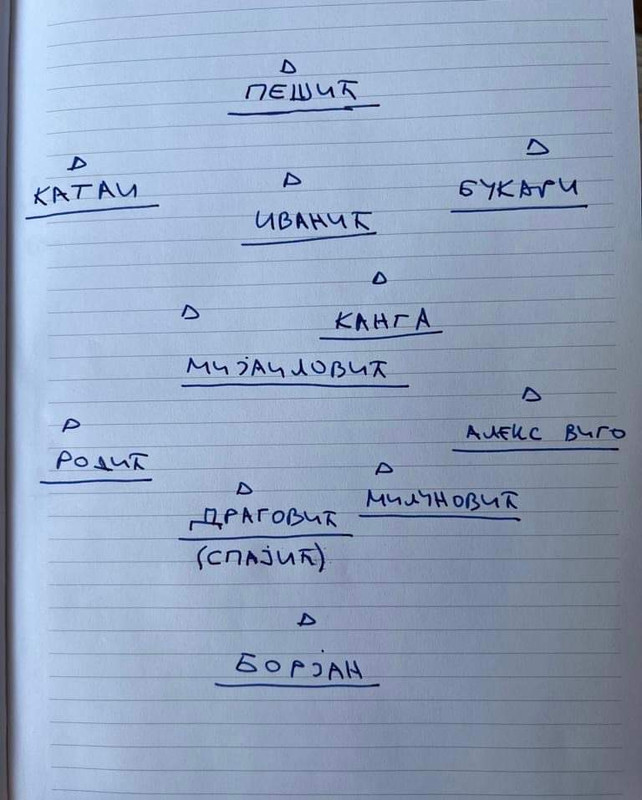 ПЕШИЋ
КАТАИ
ИВАНИЋ
БУКАРИ
КАНГА
МИЈАИЛОВИЋ
РОДИЋ
АЛЕКС ВИГО
ДРАГОВИЋ
(СПАЈИЋ)
МИЛУНОВИЋ
БОРЈАН